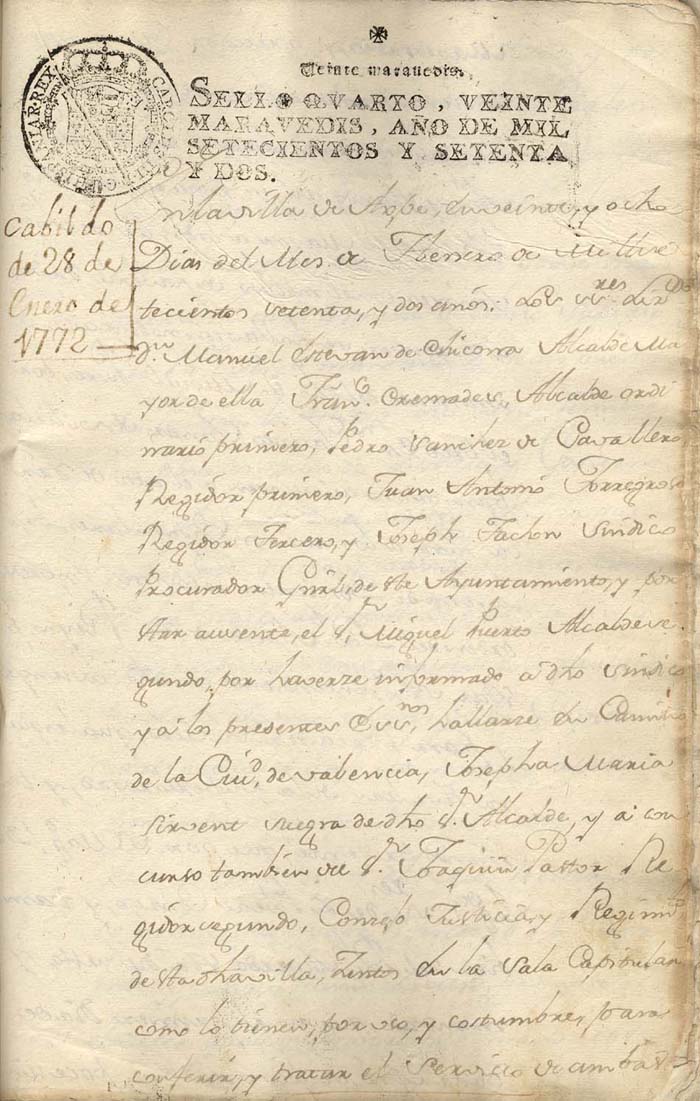 Veinte maravedis.
SELLO QVARTO, VEINTE
MARAVEDIS, AÑO DE MIL
SETECIENTOS Y SETENTA
Y DOS.
HISPANIAR·REX
Cabildo
de 28 de
Enero de
1772
En la villa de Aspe, en veinte, y ocho
Dias del Mes de Henero de Mil se
tecientos setenta, y dos años: Los ss.res Lir.do
Dn. Manuel Estevan de Chicorra Alcalde Ma
yor de ella Fran.co Cremades, Alcalde ordi
nario primero, Pedro Sanchez de Cavallero
Regidor primero, Juan Antonio Torregrosa
Regidor Tercero, y Joseph Sindico
Procurador Gnrl, de este Ayuntamiento, y por
estar ausente, el Sr. Miguel Puerto Alcalde se
gundo, por haverse informado a dho sindico
y a los presentes Ess.nos, hallarse en Camino
de la Ciud, de valencia, Josepha Maria
sirvent suegra de dho Sr. Alcalde, y a con
curso tambien de Sr. Joaquin Pastor Re
gidor segundo, Consejo Justicia, y Regimto
de esta dha villa, Juntos en la Sala Capitular
como lo tienen, por uso, y costumbre, para
conferir, y tratar el Servicio de ambas